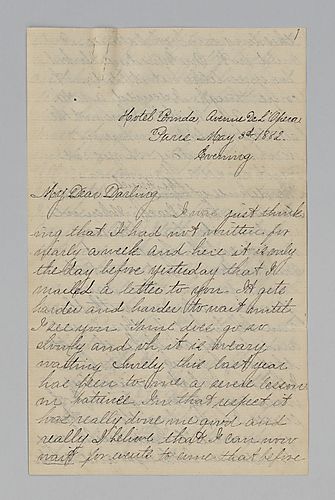 1
Hotel Binda, Avenue De L'Opera
Paris May 3d 1882.
Evening.
My Dear Darling
I was just think
ing that I had not written for
nearly a week and here it is only
the day before yesterday that I
mailed a letter to you. It gets
harder and harder to wait until
I see you. Time does go so
slowly and oh it is weary
waiting. Surely this last year
has been to me a severe lesson
in patience. In that respect it
has really done me good and
really I believe that I can now
wait for events to come that before